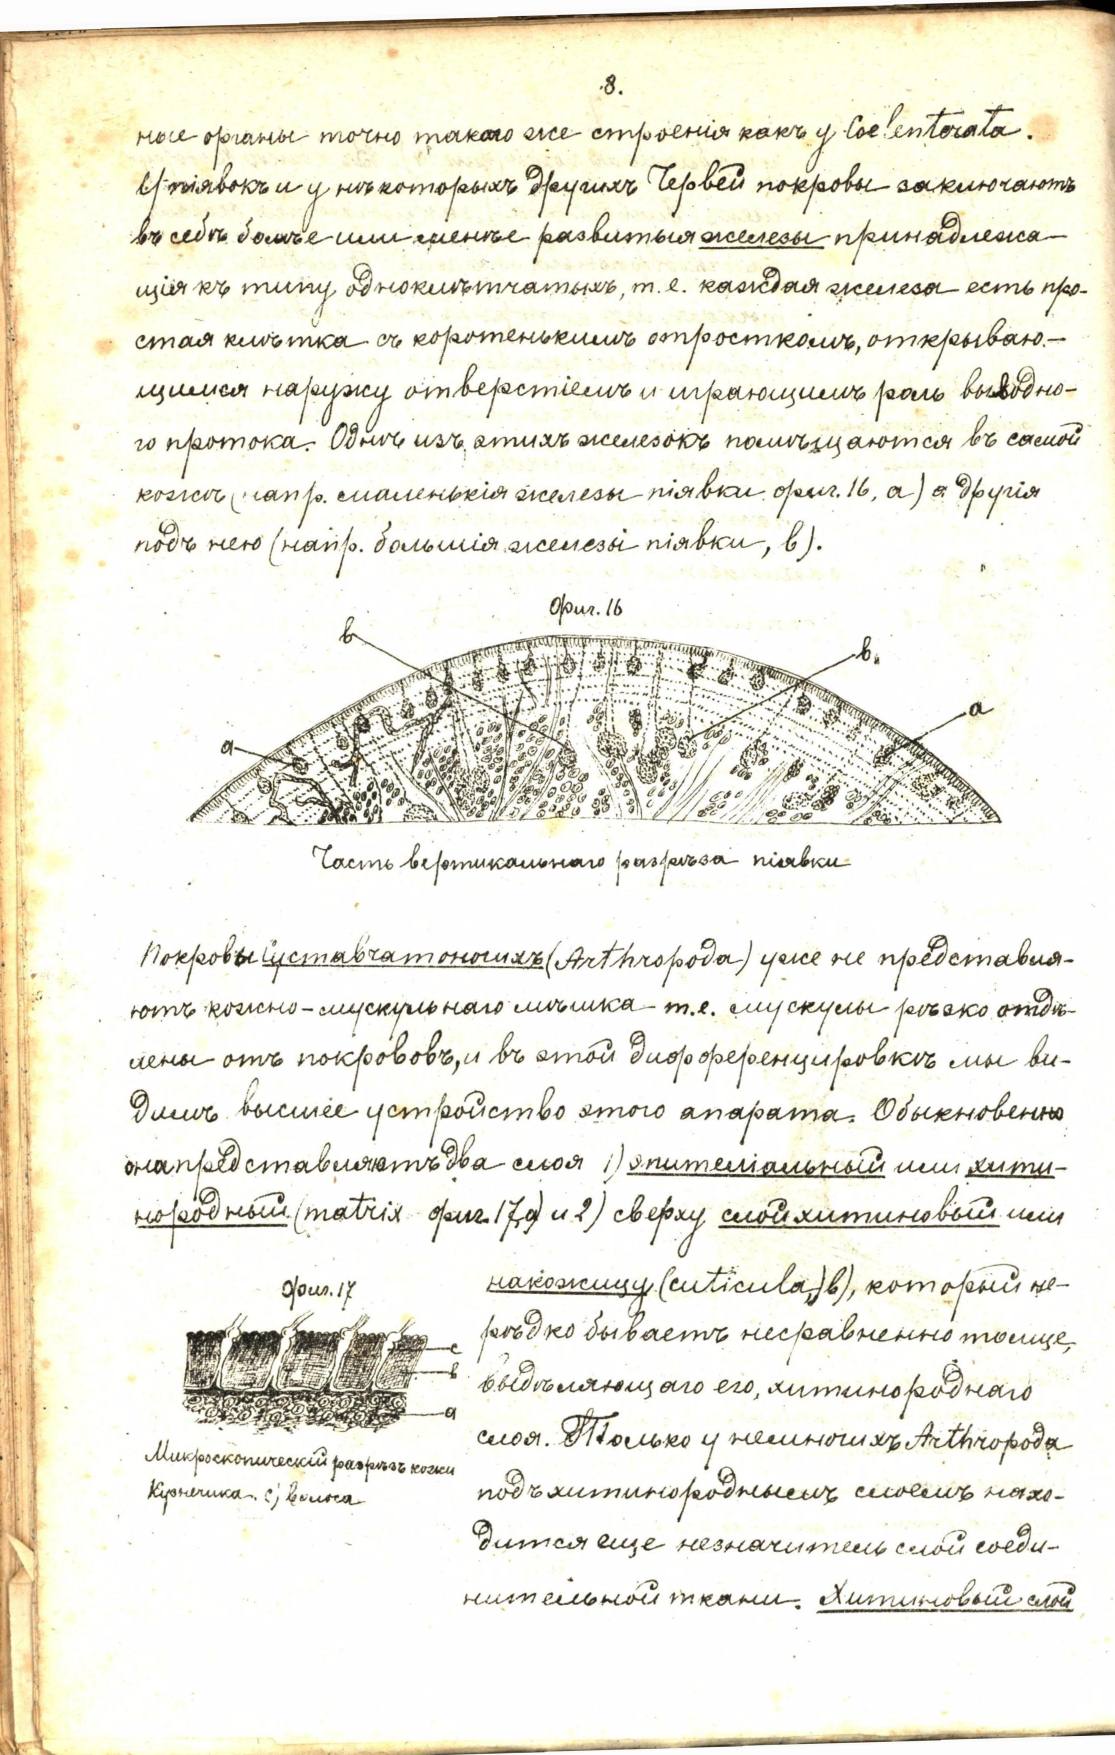 8.
ные органы точно такого же строенія какъ у Coelenterata.
У піявокъ и у нѣкоторыхъ другихъ Червей покровы заключаютъ
въ себѣ болѣе или менѣе развитыя железы принадлежа-
щія къ типу одноклѣтчатыхъ, т. е. каждая железа есть про-
стая клѣтка съ коротенькимъ отросткомъ, открываю-
щимся наружу отверстіемъ и играющимъ роль выводно-
го протока. Однѣ изъ этихъ железокъ помѣщаются въ самой
кожѣ (напр. маленькія железы піявки фиг. 16, а) а другія
подъ нею (напр. большія железы піявки, в).
Фиг. 16
в
в.
а
а
Часть вертикальнаго разрѣза піявки
Покровы Суставчатоногихъ (Arthropoda) уже не представля-
ютъ кожно-мускульнаго мѣшка т.е. мускулы рѣзко отдѣ-
лены отъ покрововъ, и въ этой дифференцировкѣ мы ви-
димъ высшее устройство этого апарата. Обыкновенно
она представляютъ два слоя 1) эпителіальный или хити-
нородный (matrix фиг. 17, а) и 2) сверху слой хитиновый или
накожицу (cuticula, в), который не-
рѣдко бываетъ несравненно толще,
выдѣляющаго его, хитинороднаго
слоя. Только у немногихъ Arthropoda
подъ хитинороднымъ слоемъ нахо-
дится еще незначитель слой соеди-
нительной ткани. Хитиновый слой
Фиг. 17
с
в
а
Микроскопическій разрѣзъ кожи
Кузнечика. с) волоса